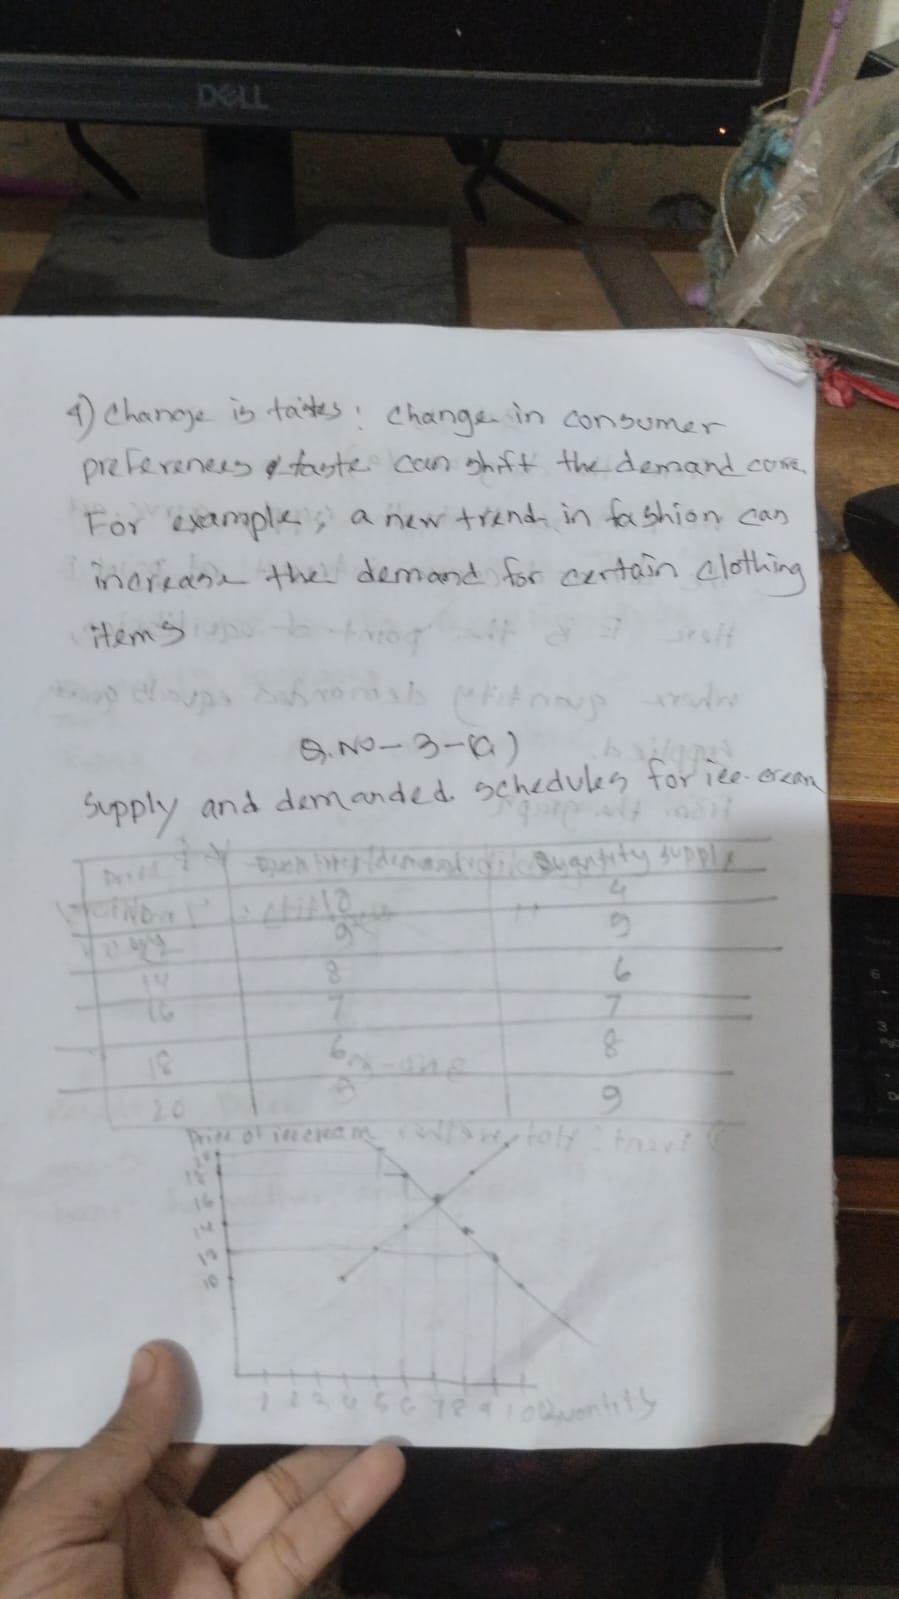 DELL
4) Change is tastes : change in consumer
preferences & taste can shift the demand curve.
For example, a new trend in fashion can
increase the demand for certain clothing
items
Q.No - 3 - (a)
Supply and demanded schedules for ice-cream
Price Quantity supply
10 4
9 5
14 8 6
16 7 7
18 6 8
20 5 9
Price of icecream
20
18
16
14
12
10
1 2 3 4 5 6 7 8 9 10 Quantity